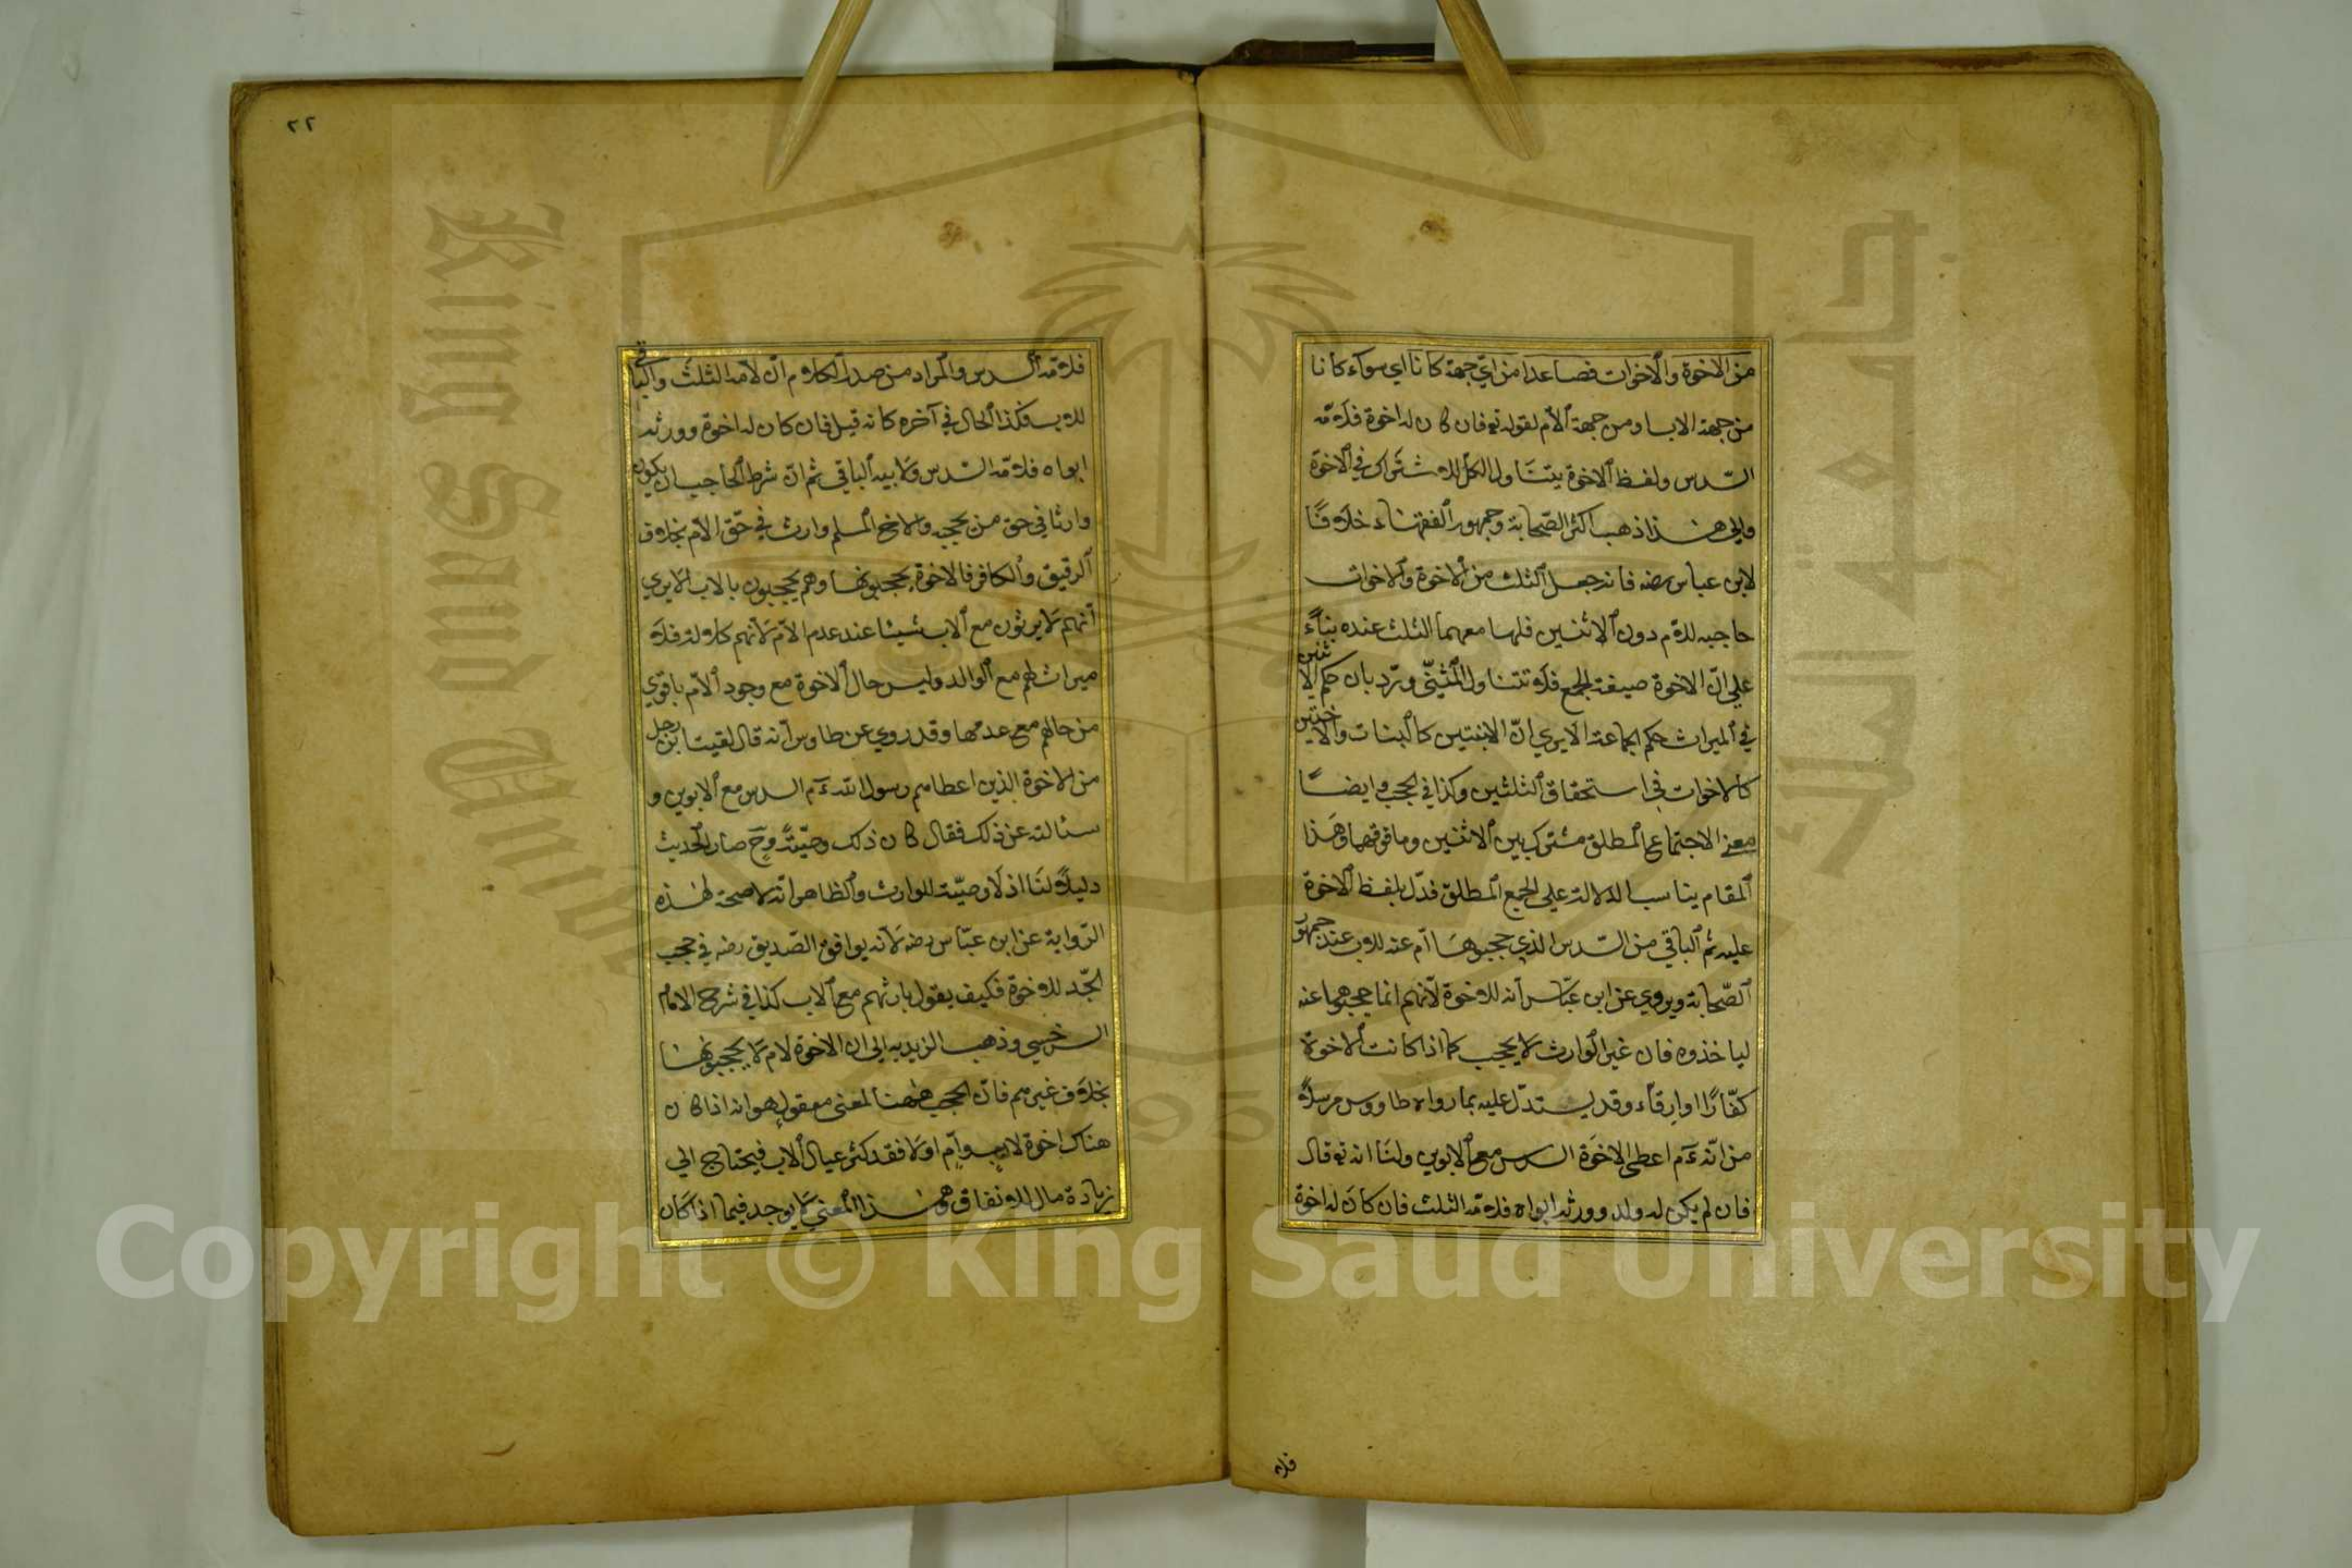 من الاخوة والاخوات فصاعدا من اي جهة كانا اي سوآء كانا
من جهة الاب او من جهة الام لقوله تع فان كان له اخوة فلامه
السدس ولفظ الاخوة يتناول الكل للاشتراك في الاخوة
والى هذا ذهب اكثر الصحابة وجمهور الفقهاء خلافًا
لابن عباس رضه فانه جعل الثلث من الاخوة والاخوات
حاجبه للام دون الاثنين فلها معهما الثلث عنده بناءً
على ان الاخوة صيغة الجمع فلا تتناول المثنى ورد بان حكم الاثنين
في الميراث حكم الجماعة الا يرى ان الابنتين كالبنات والاختين
كالاخوات في استحقاق الثلثين وكذا في الحجب وايضًا
معنى الاجتماع المطلق مشترك بين الاثنين وما فوقهما وهذا
المقام يناسب الدلالة على الجمع المطلق فدل بلفظ الاخوة
عليه ثم الباقي من السدس الذي حجبوها ام عنه للاب عند جمهور
الصحابة ويروى عن ابن عباس انه للاخوة لانهم انما حجبوها عنه
لياخذوه فان غير الوارث لا يحجب كما اذا كانت الاخوة
كفارًا او ارقاء وقد يستدل عليه بما رواه طاووس مرسلاً
من انه ءم اعطى الاخوة السدس مع الابوين ولنا انه تع قال
فان لم يكن له ولد وورثه ابواه فلامه الثلث فان كان له اخوة
فلا
٢٢
فلامه السدس والمراد من صدر الكلام ان لامه الثلث والباقي
للاب فكذا الحال في آخره كانه قيل فان كان له اخوة وورثه
ابواه فلامه السدس ولابيه الباقي ثم ان شرط الحاجب ان يكون
وارثا في حق من يحجبه والاخ المسلم وارث في حق الام بخلاف
الرقيق والكافر فالاخوة يحجبونها وهم يحجبون بالاب الا يرى
انهم لا يرثون مع الاب شيئا عند عدم الام لانهم كلالة فلا
ميراث لهم مع الوالد وليس حال الاخوة مع وجود الام باقوى
من حالهم مع عدمها وقد روي عن طاوس انه قال لقيت ابن رجل
من الاخوة الذين اعطاهم رسول الله ءم السدس مع الابوين و
سئالته عن ذلك فقال كان ذلك وصيّةً وح صار الحديث
دليلاً لنا اذ لا وصيّة للوارث والظاهر انه لا صحة لهذه
الرواية عن ابن عباس رضه لانه يوافق الصديق رضه في حجب
الجد للاخوة فكيف يقول بارثهم مع الاب كذا في شرح الامام
السرخسي وذهب الزيديه الى ان الاخوة لام لا يحجبونها
بخلاف غيرهم فان الحجب ههنا لمعنى معقول هو انه اذا كان
هناك اخوة لاب وام او لا فقد كثر عيال الاب فيحتاج الى
زيادة مال للانفاق وهذا المعنى لا يوجد فيما اذا كان
King Saud
Copyright © King Saud University